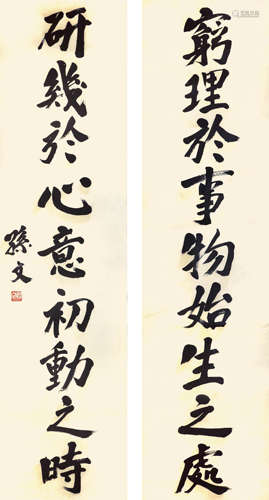 窮理於事物始生之處
研幾於心意初動之時
孫文